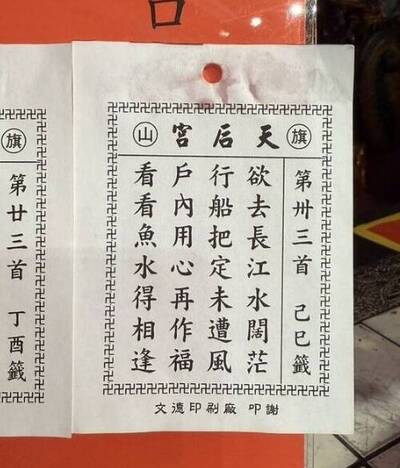 旗 天后宮 山
第卅三首 己巳籤
欲去長江水闊茫
行船把定未遭風
戶內用心再作福
看看魚水得相逢
文德印刷廠 叩謝
旗
第廿三首 丁酉籤